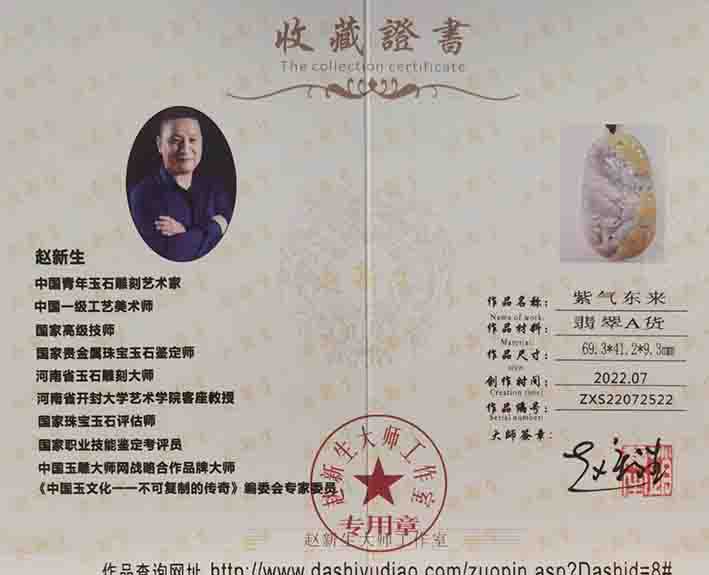 收藏證書
The collection certificate
赵新生
中国青年玉石雕刻艺术家
中国一级工艺美术师
国家高级技师
国家贵金属珠宝玉石鉴定师
河南省玉石雕刻大师
河南省开封大学艺术学院客座教授
国家珠宝玉石评估师
国家职业技能鉴定考评员
中国玉雕大师网战略合作品牌大师
《中国玉文化——不可复制的传奇》编委会专家委员
作品名称： 紫气东来
Name of work:
作品材料： 翡翠A货
Material:
作品尺寸： 69.3*41.2*9.3mm
size:
创作时间： 2022.07
Creation time:
作品编号： ZXS22072522
Serial number:
大師签章：
赵新生大师工作室
专用章
赵新生大师工作室
作品查询网址 http://www.dashiyudiao.com/zuopin.asp?Dashid=8#